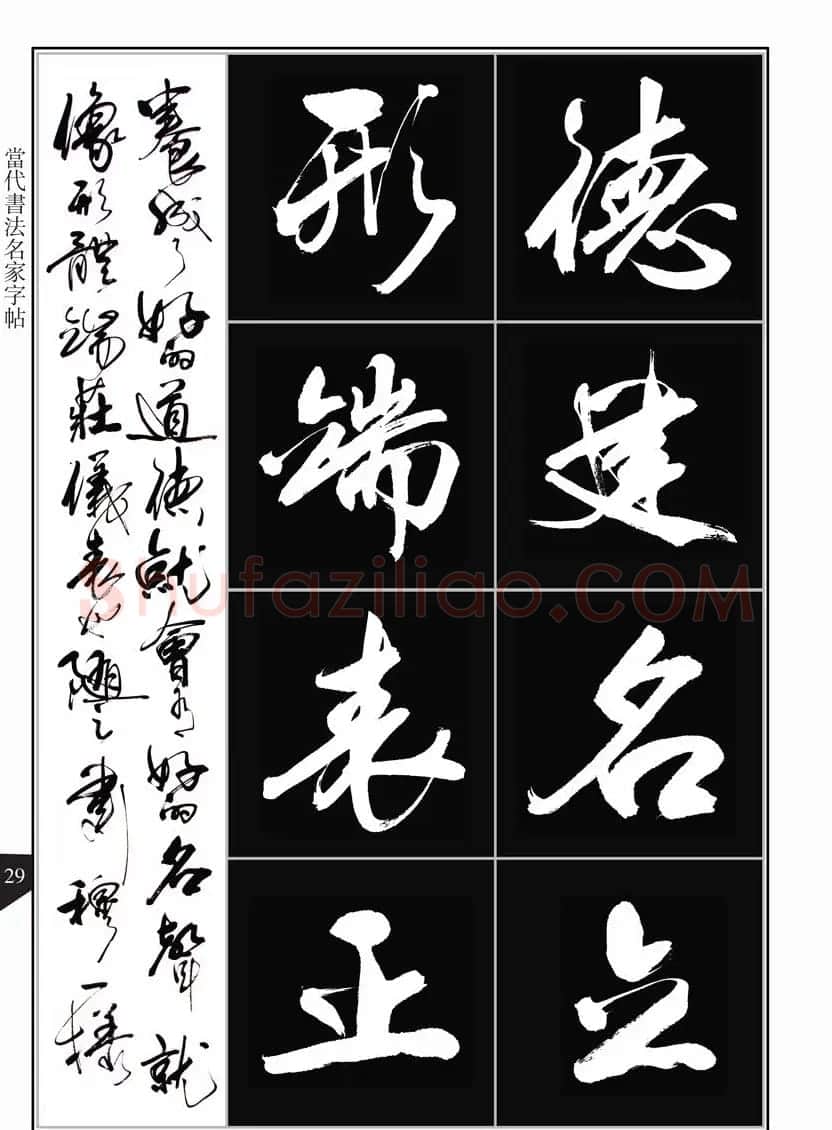 德建名立
形端表正
養成了好的道德就會有好的名聲就
像形體端莊儀表也隨之肅穆一樣
當代書法名家字帖
29
Shufaziliao.COM